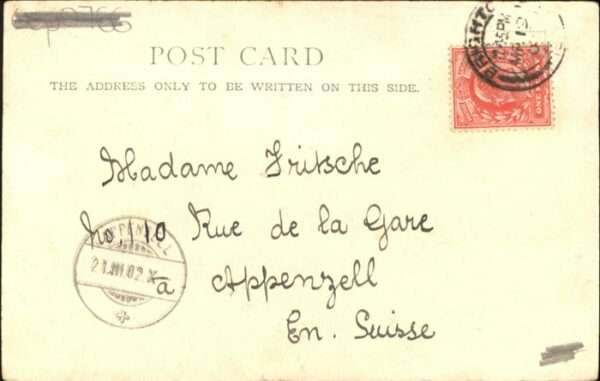 POST CARD
THE ADDRESS ONLY TO BE WRITTEN ON THIS SIDE.
ONE
Madame Fritsche
No, 10 Rue de la Gare
à Appenzell
En. Suisse
APPENZELL
21.III.02.X